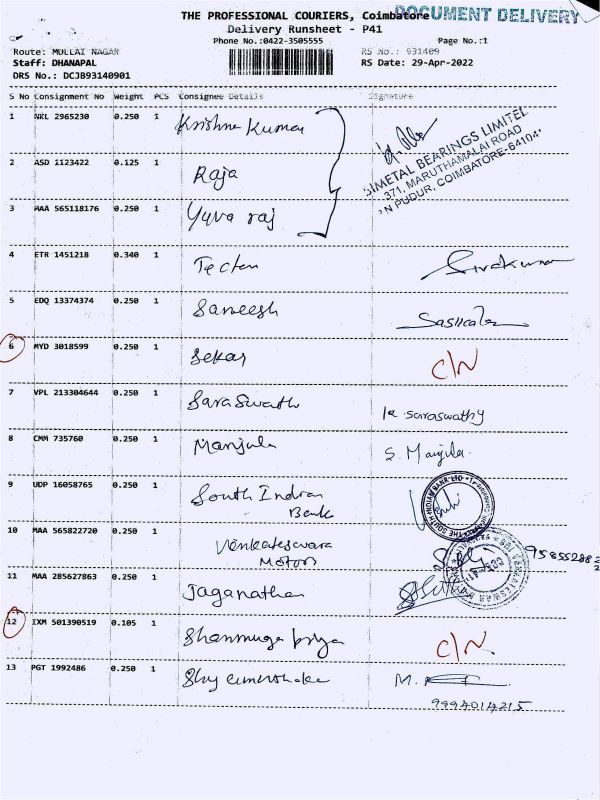 THE PROFESSIONAL COURIERS, Coimbatore
DOCUMENT DELIVERY
Delivery Runsheet - P41
Phone No.:0422-3505555 Page No.:1
Route: MULLAI NAGAR RS No.: 931409
Staff: DHANAPAL RS Date: 29-Apr-2022
DRS No.: DCJB93140901
S No Consignment No Weight PCS Consignee Details Signature
1 NKL 2965230 0.250 1 Krishna Kumar
2 ASD 1123422 0.125 1 Raja
3 MAA 565118176 0.250 1 Yuva raj
SIMETAL BEARINGS LIMITED
371, MARUTHAMALAI ROAD
N PUDUR, COIMBATORE-641041
4 ETR 1451218 0.340 1 Tecten Sivakumar
5 EDQ 13374374 0.250 1 Sareesh
6 MYD 3018599 0.250 1 Sekar C/N
7 VPL 213304644 0.250 1 SaraSwathi K Saraswathy
8 CMM 735760 0.250 1 Manjula S. Manjula
9 UDP 16058765 0.250 1 South Indian
Bank
10 MAA 565822720 0.250 1 Venkateswara
Motors
11 MAA 285627863 0.250 1 Jaganathan
12 IXM 501390519 0.105 1 Shanmuga priya C/N.
13 PGT 1992486 0.250 1 M.
9994014215